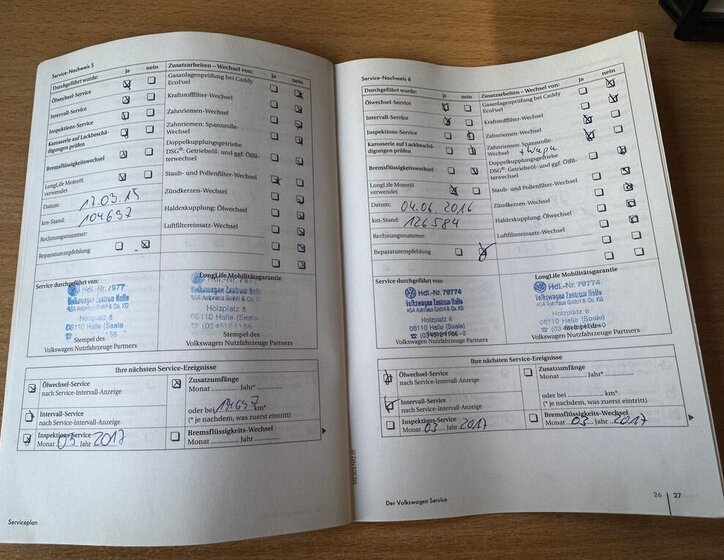 Service-Nachweis 5
Durchgeführt wurde: ja nein
Ölwechsel-Service
Intervall-Service
Inspektions-Service
Karosserie auf Lackbeschä-
digungen prüfen
Bremsflüssigkeitswechsel
LongLife Motoröl
verwendet
Datum: 17.03.15
km-Stand: 104697
Rechnungsnummer:
Reparaturempfehlung
Zusatzarbeiten – Wechsel von: ja nein
Gasanlagenprüfung bei Caddy
EcoFuel
Kraftstofffilter-Wechsel
Zahnriemen-Wechsel
Zahnriemen: Spannrolle-
Wechsel
Doppelkupplungsgetriebe
DSG®: Getriebeöl- und ggf. Ölfil-
terwechsel
Staub- und Pollenfilter-Wechsel
Zündkerzen-Wechsel
Haldexkupplung: Ölwechsel
Luftfiltereinsatz-Wechsel
Service durchgeführt von:
Hdl.-Nr. 7977
Volkswagen Zentrum Halle
ASA Autohaus GmbH & Co. KG
Holzplatz 8
06110 Halle (Saale)
Stempel des
Volkswagen Nutzfahrzeuge Partners
LongLife Mobilitätsgarantie
Hdl.-Nr.
Volkswagen Zentrum Halle
ASA Autohaus GmbH & Co. KG
Holzplatz 8
06110 Halle (Saale)
Stempel des
Volkswagen Nutzfahrzeuge Partners
Ihre nächsten Service-Ereignisse
Ölwechsel-Service
nach Service-Intervall-Anzeige
Intervall-Service
nach Service-Intervall-Anzeige
Inspektions-Service
Monat 03 Jahr 2017
Zusatzumfänge
Monat ............ Jahr* ............
oder bei 134697 km*
(* je nachdem, was zuerst eintritt)
Bremsflüssigkeits-Wechsel
Monat ............ Jahr ............
Serviceplan
Service-Nachweis 6
Durchgeführt wurde: ja nein
Ölwechsel-Service
Intervall-Service
Inspektions-Service
Karosserie auf Lackbeschä-
digungen prüfen
Bremsflüssigkeitswechsel
LongLife Motoröl
verwendet
Datum: 04.06.2016
km-Stand: 126584
Rechnungsnummer:
Reparaturempfehlung
Zusatzarbeiten – Wechsel von: ja nein
Gasanlagenprüfung bei Caddy
EcoFuel
Kraftstofffilter-Wechsel
Zahnriemen-Wechsel
Zahnriemen: Spannrolle-
Wechsel + Wapu
Doppelkupplungsgetriebe
DSG®: Getriebeöl- und ggf. Ölfil-
terwechsel
Staub- und Pollenfilter-Wechsel
Zündkerzen-Wechsel
Haldexkupplung: Ölwechsel
Luftfiltereinsatz-Wechsel
Service durchgeführt von:
Hdl.-Nr. 79774
Volkswagen Zentrum Halle
ASA Autohaus GmbH & Co. KG
Holzplatz 8
06110 Halle (Saale)
Volkswagen Nutzfahrzeuge Partners
LongLife Mobilitätsgarantie
Hdl.-Nr. 79774
Volkswagen Zentrum Halle
ASA Autohaus GmbH & Co. KG
Holzplatz 8
06110 Halle (Saale)
Stempel des
Volkswagen Nutzfahrzeuge Partners
Ihre nächsten Service-Ereignisse
Ölwechsel-Service
nach Service-Intervall-Anzeige
Intervall-Service
nach Service-Intervall-Anzeige
Inspektions-Service
Monat 03 Jahr 2017
Zusatzumfänge
Monat ............ Jahr* ............
oder bei ............ km*
(* je nachdem, was zuerst eintritt)
Bremsflüssigkeits-Wechsel
Monat 03 Jahr 2017
Der Volkswagen Service
26 27